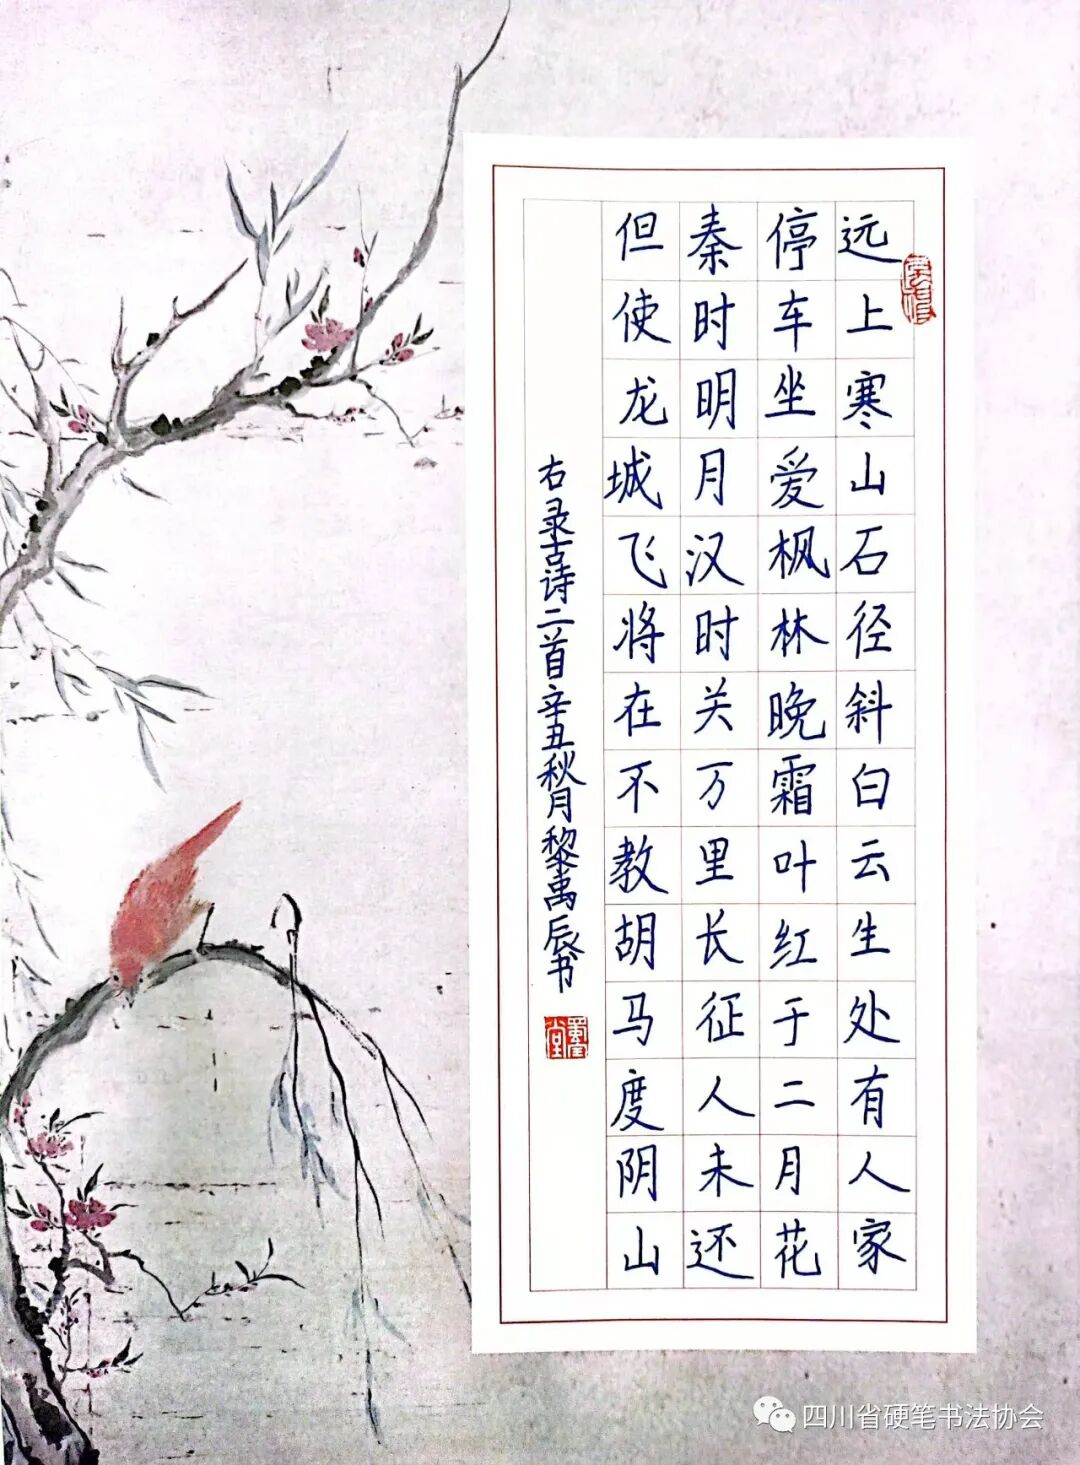 远上寒山石径斜白云生处有人家
停车坐爱枫林晚霜叶红于二月花
秦时明月汉时关万里长征人未还
但使龙城飞将在不教胡马度阴山
右录古诗二首辛丑秋月黎禹辰书
四川省硬笔书法协会